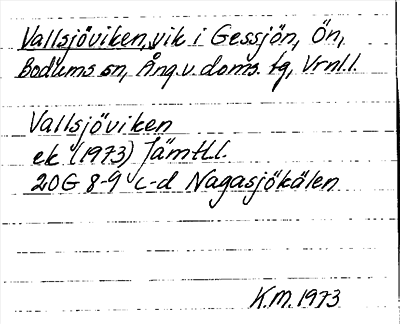 Vallsjöviken, vik i Gessjön, Ön,
Bodums sn, Ång. v. doms. tg, Vrnl.l.
Vallsjöviken
ek (1973) Jämtl.l.
20G 8-9 c-d Nagasjökälen
K.M. 1973